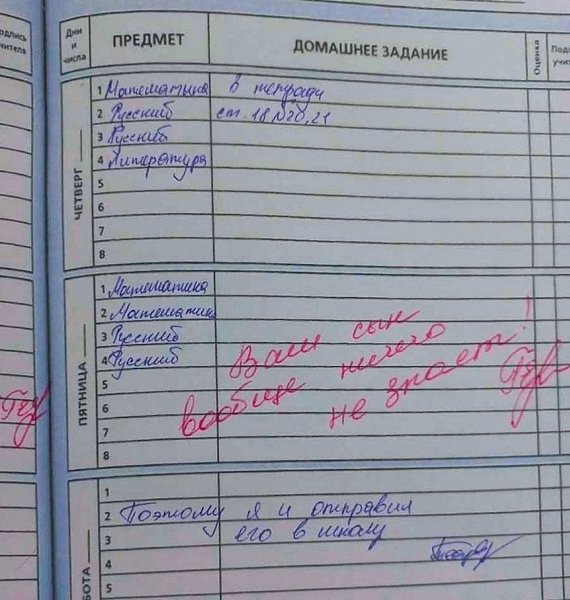 подпись
учителя
Дни
и
числа
ПРЕДМЕТ
ДОМАШНЕЕ ЗАДАНИЕ
Оценка
ЧЕТВЕРГ
1 Математика в тетради
2 Русский ст. 18 №20,21
3 Русский
4 Литература
5
6
7
8
ПЯТНИЦА
1 Математика
2 Математика
3 Русский
4 Русский
5
6
7
8
Ваш сын
вообще ничего
не знает!
1
2 Поэтому я и отправил
3 его в школу
4
5